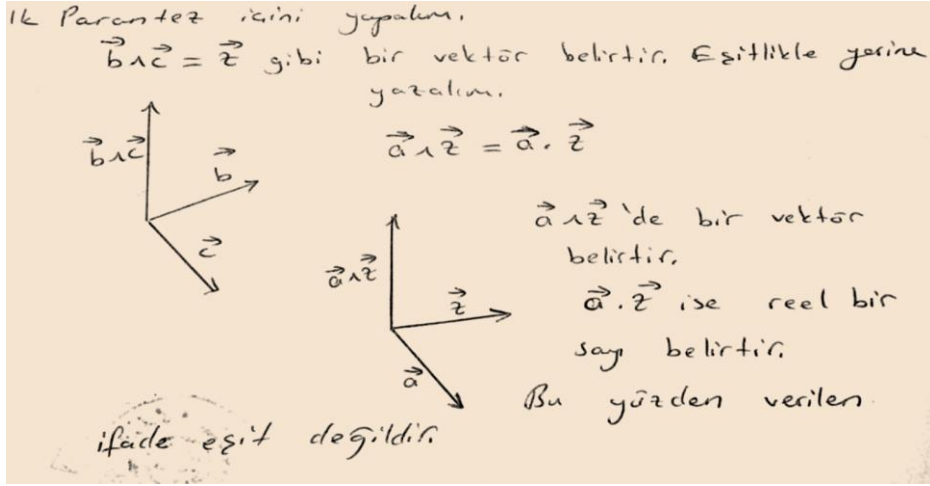 Ilk Parantez içini yapalım.
b⃗ ∧ c⃗ = z⃗ gibi bir vektör belirtir. Eşitlikle yerine
yazalım.
b⃗ ∧ c⃗
b⃗
c⃗
a⃗ ∧ z⃗ = a⃗ . z⃗
a⃗ ∧ z⃗
z⃗
a⃗
a⃗ ∧ z⃗ 'de bir vektör
belirtir.
a⃗ . z⃗ ise reel bir
sayı belirtir.
Bu yüzden verilen
ifade eşit değildir.